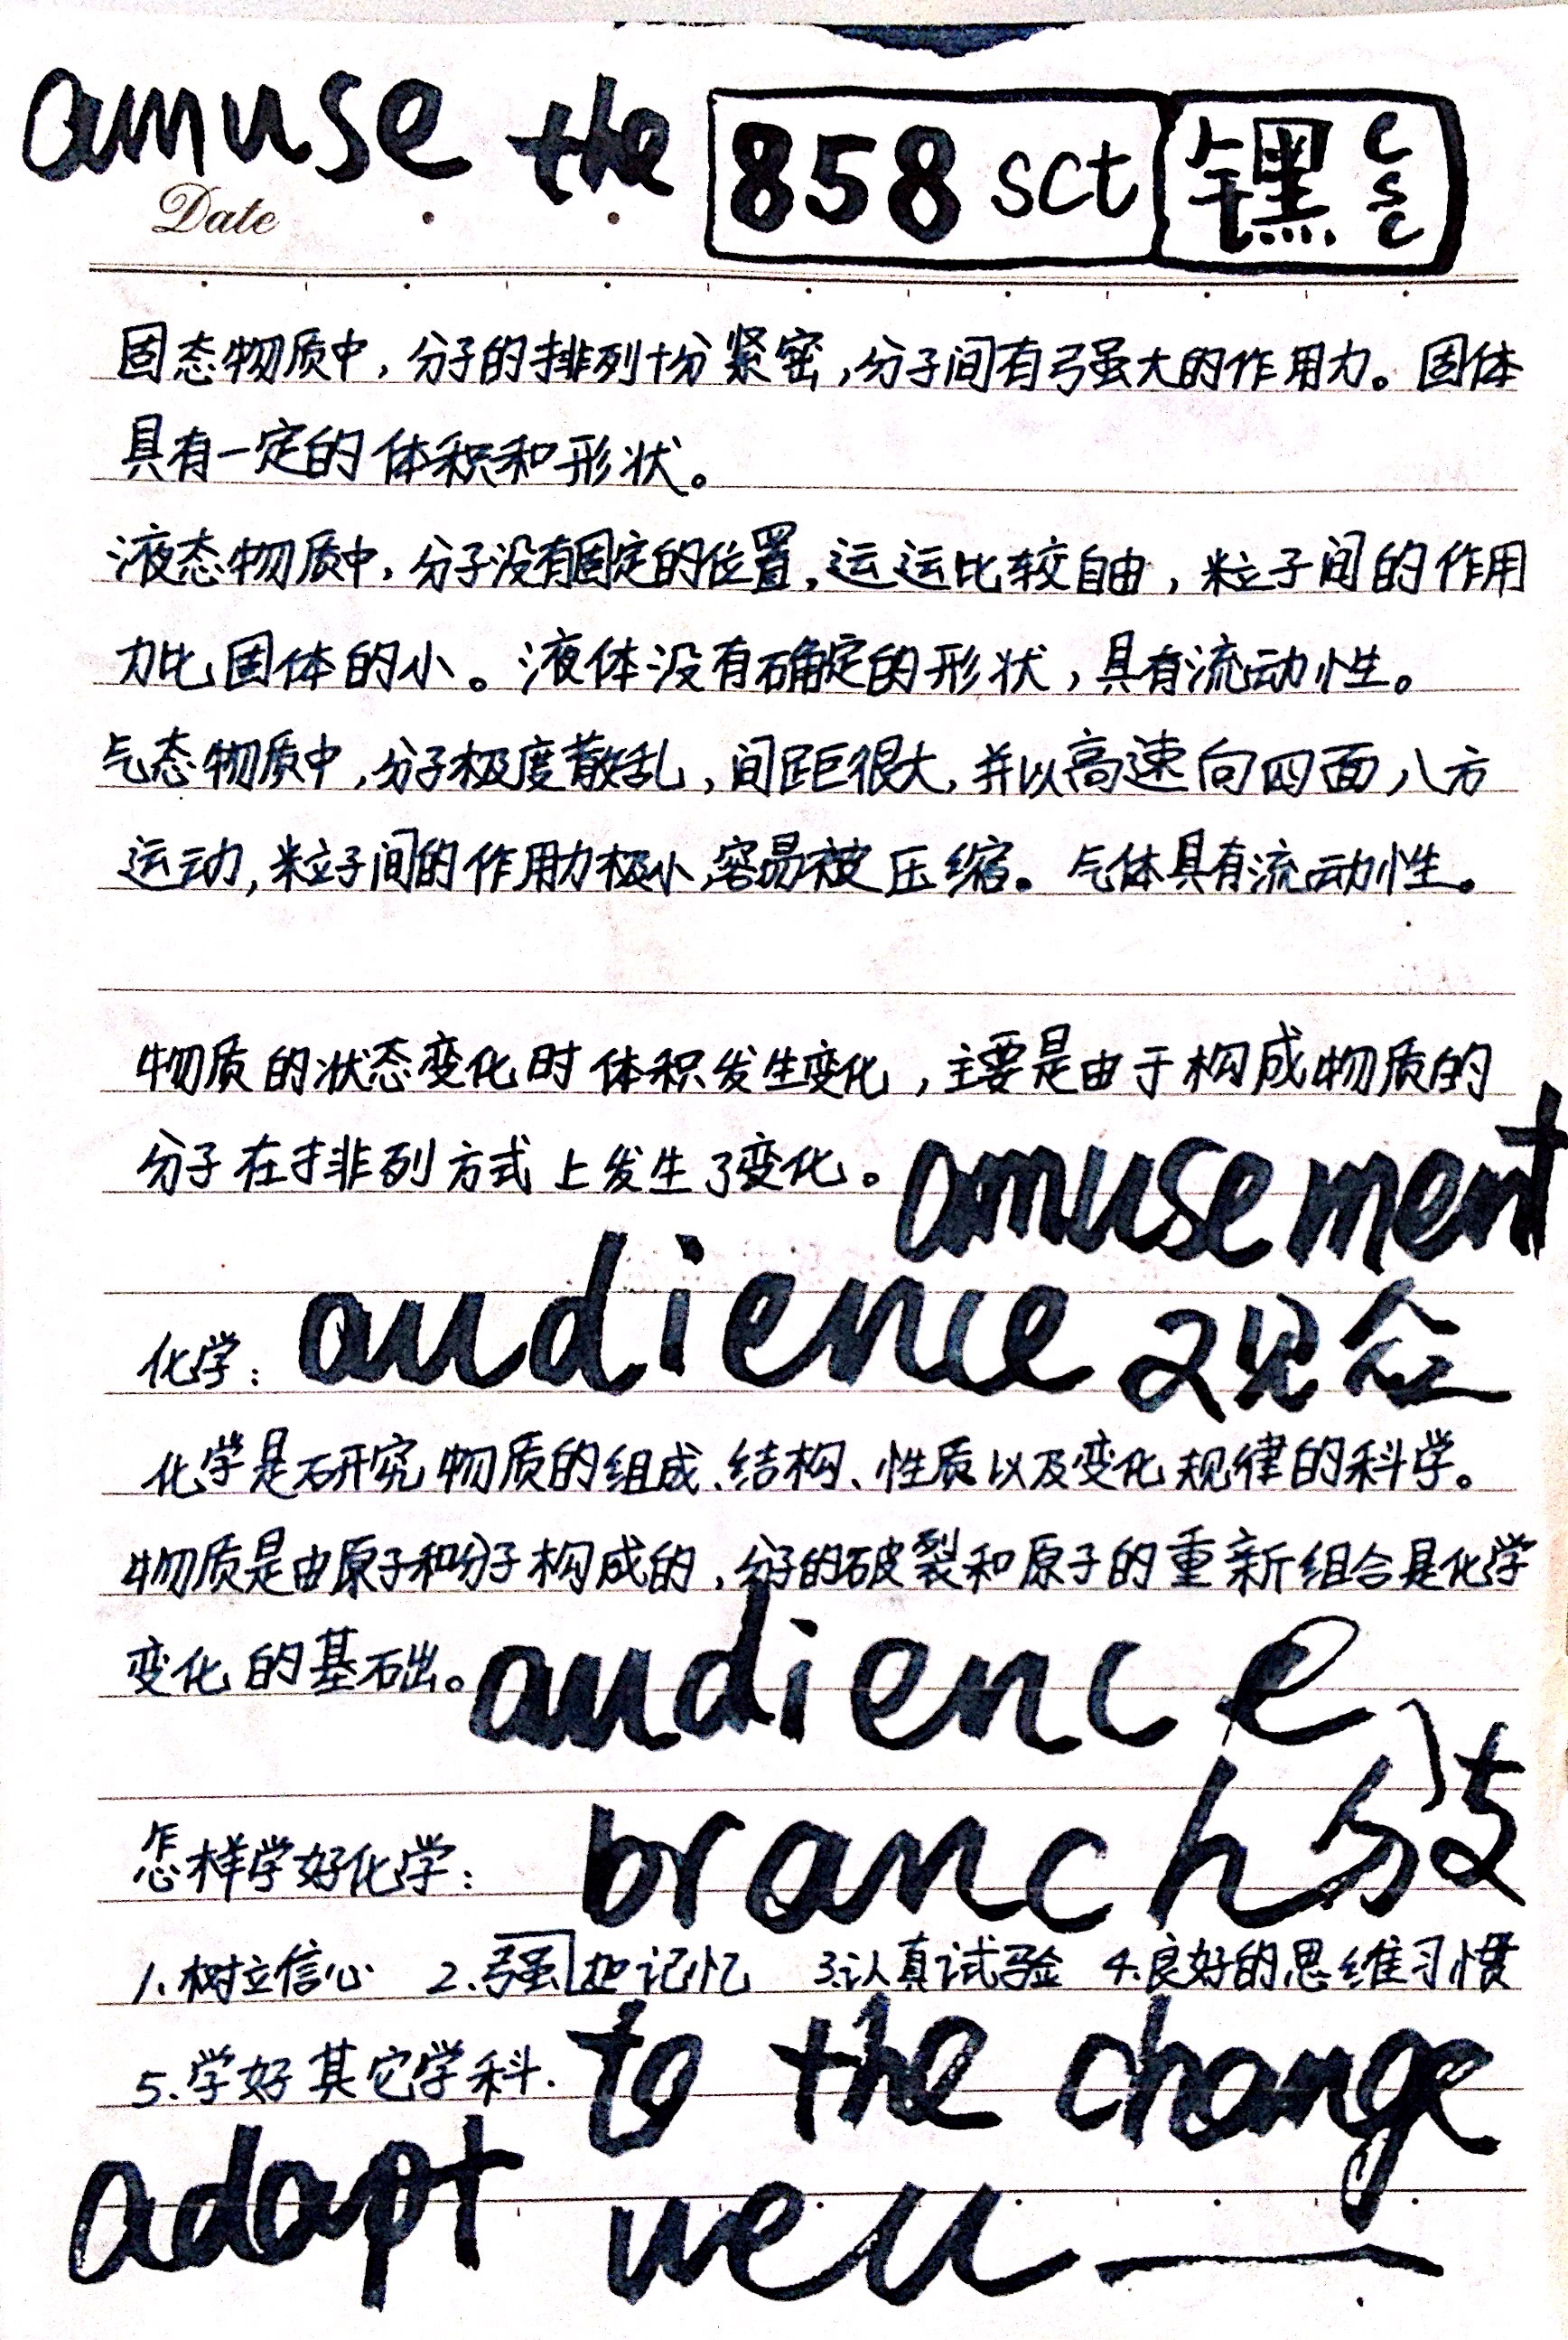 amuse the 858 sct 镙 csc
Date
固态物质中，分子的排列十分紧密，分子间有强大的作用力。固体
具有一定的体积和形状。
液态物质中，分子没有固定的位置，运运比较自由，粒子间的作用
力比固体的小。液体没有确定的形状，具有流动性。
气态物质中，分子极度散乱，间距很大，并以高速向四面八方
运动，粒子间的作用力极小，容易被压缩。气体具有流动性。
物质的状态变化时体积发生变化，主要是由于构成物质的
分子在排列方式上发生了变化。amusement
化学：audience 观众
化学是研究物质的组成、结构、性质以及变化规律的科学。
物质是由原子和分子构成的，分子的破裂和原子的重新组合是化学
变化的基础。audience
怎样学好化学：branch 分支
1.树立信心 2.强加记忆 3.认真试验 4.良好的思维习惯
5.学好其它学科. to the change
adapt well